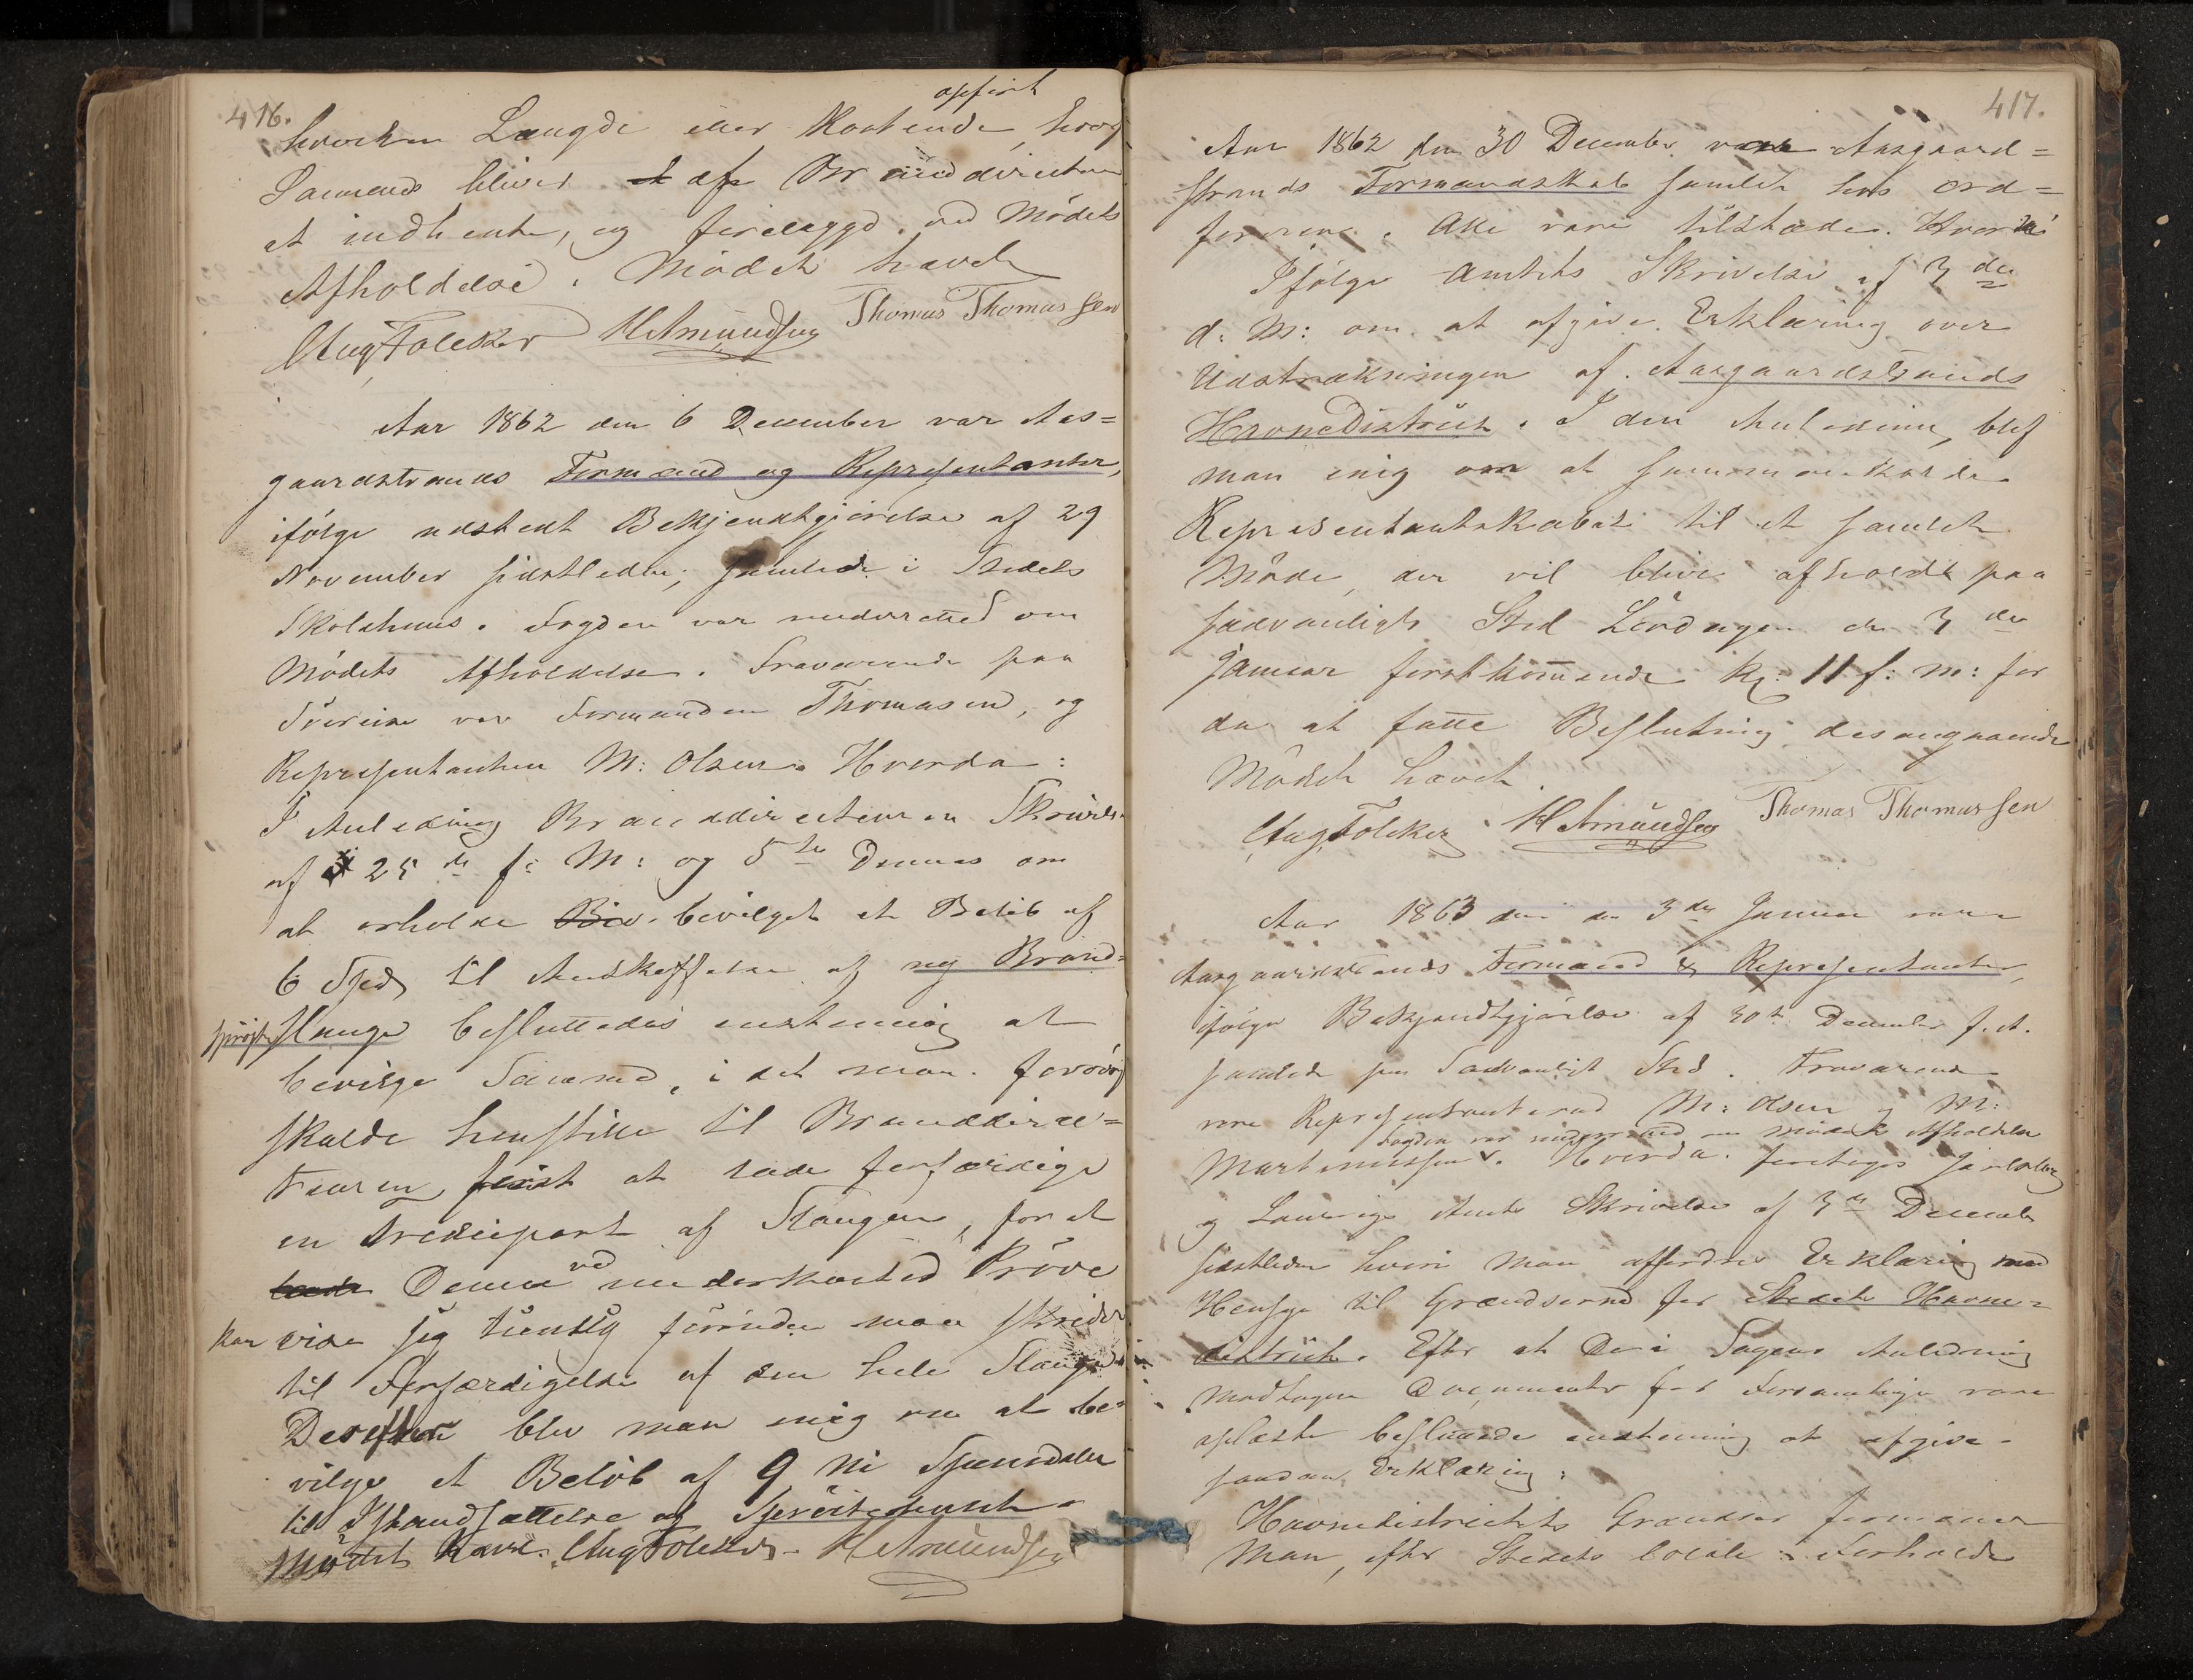 416.
opført
hvorken Længde eller Kostende, hvorf
Saameds bliver af Branddirecteuren
at indhente, og forelægge ved Mødets
Afholdelse. Mødet hævet
Aug Foleker HAmundsen Thomas Thomassen
Aar 1862 den 6 December var Aas=
gaardstrands Formænd og Representanter,
ifølge udstedt Bekjendtgjørelse af 29
November sidstleden, samlede i Stedets
Skolehuus. Fogden var underrettet om
Mødets Afholdelse. Fraværende paa
Søreise var Formanden Thomasen, og
Representanten M: Olsen. Hvorda:
I Anledning Branddirecteuren Skrivelse
af 25 de f: M: og 5te Dennes om
at erholde bevilget et Beløb af
6 Spd til Anskaffelse af ny Brand=
sprøjte slange besluttedes enstemmig at
bevilge Saamed, i det man forøvrigt
skulde henstille til Branddirec=
teuren, først at lade forfærdige
en Trediepart af Slangen, for at
Denne ved underkastet Prøve
kan vise sig tienlig førinden man skrider
til Forfærdigelse af den hele Slange
Derefter blev man enig om at be=
vilge et Beløb af 9 ni Speciedaler
til Istandsættelse af Sprøitehuset.
Mødet hævet. Aug Foleker HAmundsen
417.
Aar 1862 den 30 December vare Aasgaard=
strands Formandskab samlet hos Ord=
føreren. Alle vare tilstæde. Hvorda
Ifølge Amtets Skrivelse af 3 die
d: M: om at afgive Erklæring over
Udstrækningen af Aasgaardstrands
Havnedistrict. I den Anledning, blef
man enig om at sammenkalde
Representantskabet til et samlet
Møde, der vil blive afholdt paa
sædvanligt Sted Lørdagen de 3 die
Januar førstkommende kl: 11 f: m: for
da at fatte Beslutning desangaaende
Mødet hævet.
Aug. Foleker HAmundsen Thomas Thomassen
Aar 1863 den 3 die Januar vare
Aasgaardstrands Formænd & Representanter,
ifølge Bekjendtgjørelse af 30te December f. A.
samlede paa Sædvanligt Sted. Fraværende
vare Representanterne M: Olsen og M:
Fogden var underrettet om mødets Afholdelse
Martinussen. Hvorda. foretoges Jarlsberg
og Laurvigs Amts Skrivelse af 3die December
sidstleden hvori man affordres Erklæring med
Hensyn til Grændserne for Stedets Havne=
district. Efter at De i Sagens Anledning
modtagne Documenter for Forsamlingen vare
oplæste besluttede enstemmig at afgive
saadan Erklæring:
Havnedistrictets Grændser formener
Man, efter Stedets locale Forholde